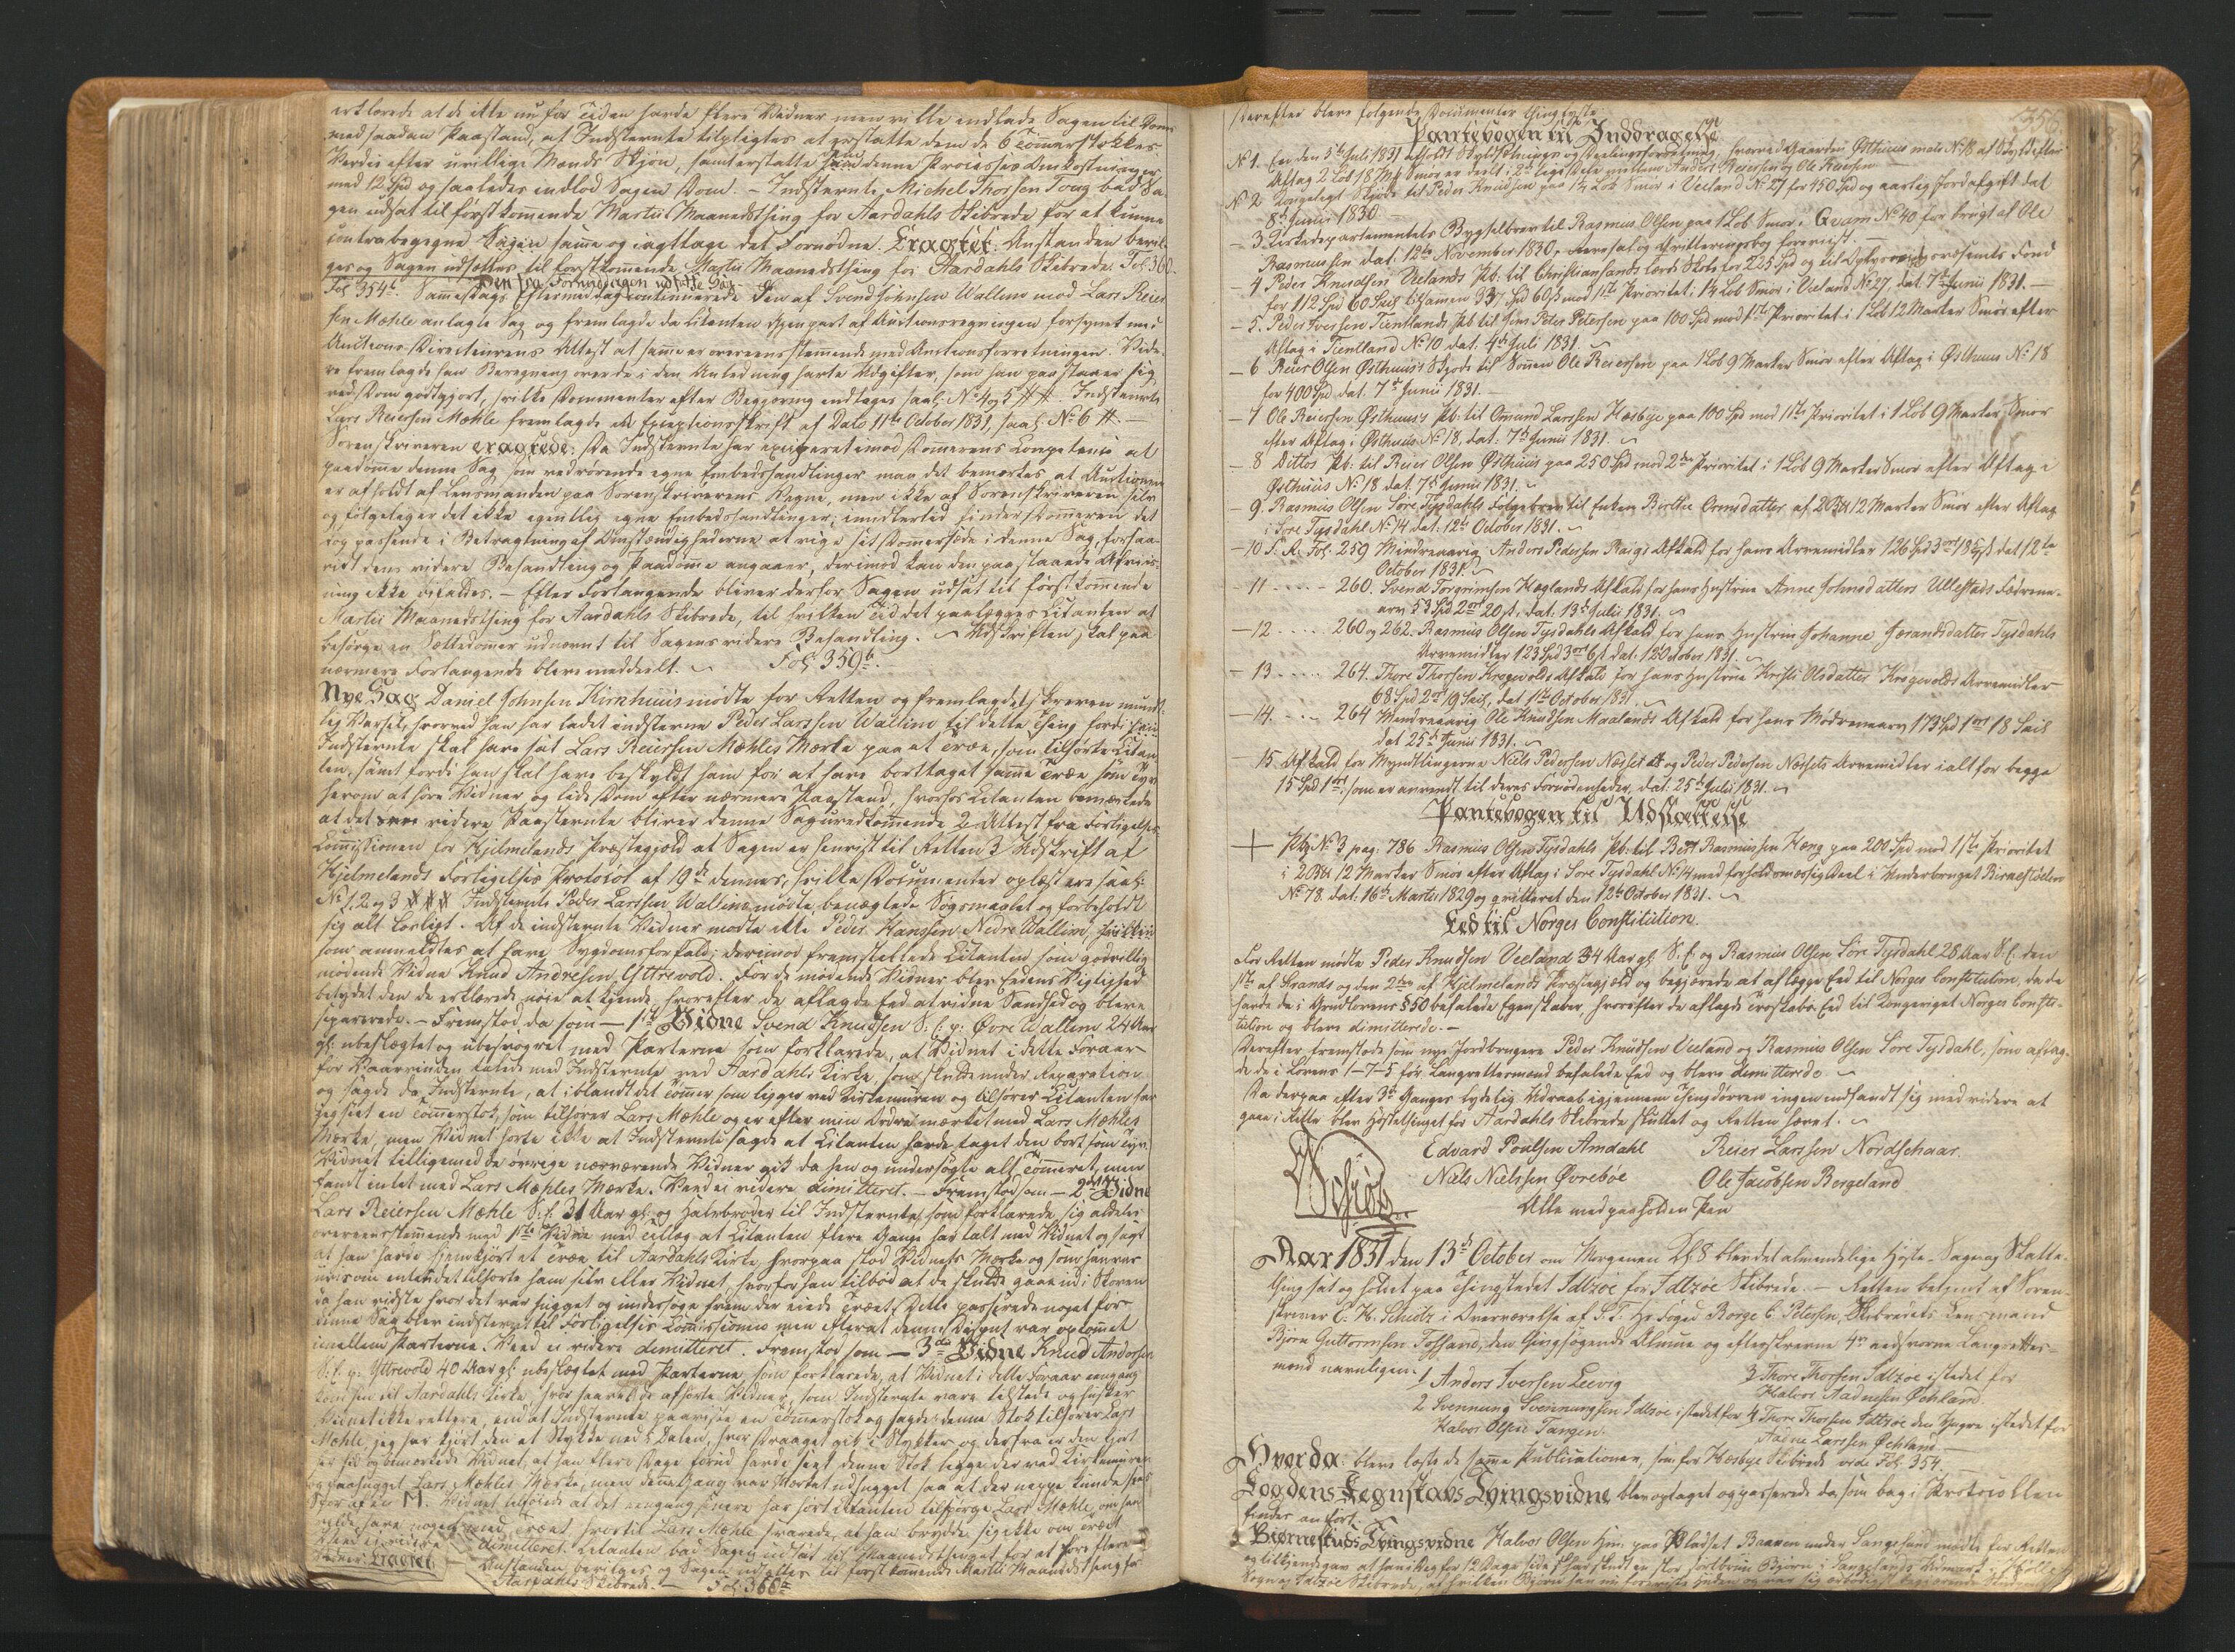 erklærede at de ikke nu for Tiden havde flere Vidner men ville indlade Sagen til Dom
med saadan Paastand, at Indstevnte tilpligtes at erstatte dem de 6 Tømmerstokkes
Værdie efter uvillige Mænds Skjøn, samt erstatte ham denne Processes Omkostninger
med 12 Spd og saaledes indlod Sagen Dom. – Indstevnte Michel Thorsen Toug bad Sa-
gen udsat til førstkommende Martii Maanedsthing for Aardahls Skibrede for at kunne
contrabegegne Sagen samme og iagttage det Fornødne. Eragtet: Anstanden bevil-
ges og Sagen udsættes til førstkommende Martii Maanedsthing for Aardahls Skibrede. Fol: 360
Den fra Formiddagen udsatte Sag
Fol 354b. Samme Dags Eftermiddag continuerede den af Svend Johnsen Wallem mod Lars Reier
sen Mæhle anlagte Sag og fremlagde da Citanten Gjenpart af Auctionsregningen forsynet med
Auctions Directeurens Attest at samme er overeensstemmende med Auctionsforretningen. Vide-
re fremlagde han Beregning over de i den Anledning havte Udgifter, som han paastaaer sig
ved Dom godtgjort, hvilke Documenter efter Begjæring indtages saal: No 4 og 5 ##. Indstevnte
Lars Reiersen Mæhle fremlagde et Exceptionsskrift af Dato 11te October 1831, saal: No 6 #. —
Sorenskriveren eragtede: Da Indstevnte har exciperet imod Dommerens Competence at
paadømme denne Sag som vedrørende egne Embedshandlinger maa det bemærkes at Auctionen
er afholdt af Lensmanden paa Sorenskriverens Vegne, men ikke af Sorenskriveren selv
og følgelig er det ikke egentlig egne Embedshandlinger; imidlertid finder Dommeren det
dog passende i Betragtning af Omstændighederne at vige sit Dommersæde i denne Sag, forsaa-
vidt dens videre Behandling og Paadømme angaaer, derimod kan den paastaaede Afviis-
ning ikke bifaldes. – Efter Forlangende bliver derfor Sagen udsat til førstkommende
Martii Maanedsthing for Aardahls Skibrede, til hvilken Tid det paalægges Citanten at
besørge en Sættedommer udnævnt til Sagens videre Behandling. ~ Udskriften skal paa
nærmere Forlangende blive meddeelt. ~ Fol: 359b.
Nye Sag Daniel Johnsen Kirkhuus mødte for Retten og fremlagde skreven mundt-
lig Varsel, hvorved han har ladet indstevne Peder Larssen Wallem til dette Thing fordi
Indstevnte skal have sat Lars Reiersen Mæhles Mærke paa et Træe, som tilhørte Citan-
ten, samt fordi han skal have beskyldt ham for at have borttaget samme Træe som Tyv
herom at høre Vidner og lide Dom efter nærmere Paastand, hvorhos Citanten bemærkede
at det videre Paastevnte bliver denne Sag uvedkommende 2 Attest fra Forligelses
Commissionen for Hjelmelands Præstegjeld at Sagen er henvist til Retten 3 Udskrift af
Hjelmelands Forligelses Protocol af 19de dennes, hvilke Documenter oplæst ere saal:
No 1. 2 og 3 ### Indstevnte Peder Larssen Wallem mødte, benægtede Søgsmaalet og forbeholdt
sig alt Lovligt. Af de indstevnte Vidner mødte ikke Peder Hanssen Nedre Wallem, hvilken
som anmeldtes at have Sygdomsforfald; derimod fremstillede Citanten som godvillig
mødende Vidne Knud Andresen Yttrevold. For de mødende Vidner blev Eedens Vigtighed
betydet den de erklærede nøie at kjende, hvorefter de aflagde Eed at vidne Sandhed og bleve
separerede. – Fremstod da som – 1ste Vidne Svend Knudsen S. f. g: Øvre Wallem 24 Aar
gl: ubeslægtet og ubesvogret med Parterne som forklarede, at Vidnet i dette Foraar
før Vaarvinden talede med Indstevnte ved Aardahls Kirke, som stod under Reparation
og sagde da Indstevnte, at iblandt det Tømmer som ligger ved Kirkemuren og tilhører Citanten har
jeg seet en Tømmerstok, som tilhører Lars Mæhle og er efter min Ordre mærket med Lars Mæhles
Mærke, men Vidnet hørte ikke at Indstevnte sagde at Citanten havde taget den bort som Tyv.
Vidnet tilligemed de øvrige nærværende Vidner gik da hen og undersøgte alt Tømmeret, men
fandt intet med Lars Mæhles Mærke. Veed ei videre dimitteret. – Fremstod som – 2det Vidne
Lars Reiersen Mæhle S. f. 31 Aar gl: og Halvbroder til Indstevnte, som forklarede sig aldeles
overeensstemmende med 1ste Vidne med Tillæg at Citanten flere Gange har talt med Vidnet og sagt
at han havde hjemkjørt et Træe til Aardahls Kirke hvorpaa stod Vidnets Mærke og som han var
uvis om enten det tilhørte ham selv eller Vidnet, hvorfor han tilbød at de skulde gaae ind i Skoven
da han vidste hvor det var hugget og undersøge hvem der eiede Træet. Dette passerede noget før
denne Sag blev indstevnt til Forligelses Commissionen men efterat denne Disput var opkommet
imellem Parterne. Veed ei videre dimitteret. Fremstod som – 3die Vidne Knud Andersen
S. f. g: Yttrevold 40 Aar gl: ubeslægtet med Parterne, som forklarede, at Vidnet i dette Foraar engang
kom hen til Aardahls Kirke, hvor saavel de afhørte Vidner, som Indstevnte vare tilstede og husker
Vidnet ikke rettere, end at Indstevnte paaviste en Tømmerstok og sagde: denne Stok tilhører Lars
Mæhle, jeg har kjørt den et Stykke ned i Dalen,
og paahugget Lars Mæhles Mærke, men denne Gang var Mærket udhugget saa at der neppe kunde sees
Spor af en M.
dimitteret. Citanten bad Sagen udsat til Maanedsthinget for at føre flere
Vidner. Eragtet Anstanden bevilges og Sagen udsættes til først kommende Martii Maanedsthing for
Aardahls Skibrede. – Fol: 366a
356.
Derefter bleve følgende Documenter thinglyste
Pantebogen til Inddragelse
No 1. En den 5te Juli 1831 afholdt Skyldsætnings og Deelingsforretning, hvorved Gaarden Østhuus Matr. No 18 af Skyld efter
Aftag 2 Løb 18 Mk Smør er deelt i 2de lige Dele mellem Anders Reiersen og Ole Reiersen. —
No 2 Kongeligt Skjøde til Peder Knudsen paa 1½ Løb Smør i Veeland No 27 for 450 Spd og aarlig Jordafgift dat
8de Junii 1830 —
– 3. Kirkedepartementets Bygselbrev til Rasmus Olsen paa 1 Løb Smør i Qvam No 40 før brugt af Ole
Rasmussen dat: 12te November 1830, Reversal og Qvitteringsbog foreviist. —
– 4 Peder Knudsen Veelands Pb: til Christiansands lærde Skole for 225 Spd og til Oplysningsvæsenets Fond
for 112 Spd 60 Skil tilsamen 337 Spd 60 ß mod 1ste Prioritet i 1½ Løb Smør i Veeland No 27 dat: 7de Junii 1831. —
– 5. Peder Iversen Tientlands Pb til Jens Peter Petersen paa 100 Spd mod 1ste Prioritet i 1 Løb 12 Marker Smør efter
Aftag i Tientland No 10 dat. 4de Juli 1831. ~
– 6 Reier Olsen Østhuus's Skjøde til Sønnen Ole Reiersen paa 1 Løb 9 Marker Smør efter Aftag i Østhuus No 18
for 400 Spd dat. 7de Junii 1831. —
– 7 Ole Reiersen Østhuus's Pb: til Omund Larssen Hæsbye paa 100 Spd mod 1ste Prioritet i 1 Løb 9 Marker Smør
efter Aftag i Østhuus No 18, dat: 7de Junii 1831. ~
– 8 Dittos Pb: til Reier Olsen Østhuus paa 250 Spd mod 2den Prioritet i 1 Løb 9 Marker Smør efter Aftag i
Østhuus No 18 dat: 7de Junii 1831. ~
– 9. Rasmus Olsen Søre Tysdahls Følgebrev til Enken Berthe Ormsdatter af 2 12 Marker Smør efter Aftag
i Søre Tysdahl No 14 dat: 12te October 1831. ~
– 10 S. A. Fol: 259 Mindreaarig Anders Pedersen Raigs Afkald for hans Arvemidler 126 Spd 3 ort 18 ß dat 12te
October 1831. ~
– 11 . . . . – 260. Svend Torgrimsen Høglands Afkald for hans Hustrue Anne Johnsdatters Ullestads Fædrene-
arv 53 Spd 2 ort 20 ß. dat: 13de Julii 1831. ~
– 12 . . . . 260 og 262. Rasmus Olsen Tysdahls Afkald for hans Hustrue Johanne Gærandsdatter Tysdahls
Arvemidler 123 Spd 3 ort 6 ß dat: 12 October 1831. ~
– 13 . . . . . 264. Thore Thorsen Krogevolds Afkald for hans Hustrue Kirsti Olsdatter Krogevolds Arvemidler
68 Spd 2 ort 19 Skil, dat 1ste October 1831. ~
– 14. . . – 264 Mindreaarig Ole Knudsen Maalands Afkald for hans Mødrenearv 173 Spd 1 ort 18 Skil
dat 25de Junii 1831. ~
– 15. Afkald for Myndlingerne Niels Pedersen Næset og Peder Pedersen Næsets Arvemidler ialt for begge
15 Spd 1 ort, som er anvendt til deres Fornødenheder, dat: 25de Julii 1831. ~
Pantebogen til Udslættelse
+ Pb No 3 pag: 786 Rasmus Olsen Tysdahls Pb: til Bent Rasmussen Hæng paa 200 Spd mod 1ste Prioritet
i 2 12 Marker Smør efter Aftag i Søre Tysdahl No 14 med forholdsmæssig Deel i Underbruget
No 78. dat: 16de Martii 1829 og qvitteret den 12te October 1831. ~
Eed til Norges Constitution.
For Retten mødte Peder Knudsen Veeland 34 Aar gl. S. f. og Rasmus Olsen Søre Tysdahl 28 Aar S. f. den
1ste af Strands og den 2den af Hjelmelands Præstegjeld og begjerede at aflægge Eed til Norges Constitution, da de
havde de i Grundlovens § 50 befalede Egenskaber, hvorefter de aflagde Troskabs Eed til Kongeriget Norges Consti-
tution og bleve dimitterede. —
Derefter fremstode som nye Jordbrugere Peder Knudsen Veeland og Rasmus Olsen Søre Tysdahl, som aflag-
de de i Lovens 1–7–5 for Laugrettesmænd befalede Eed og bleve dimitterede ~
Da derpaa efter 3de Ganges lydelig Udraab igjennem Thingdørren ingen indfandt sig med videre at
gaae i Rette blev Høstethinget for Aardahls Skibrede sluttet og Retten hævet. ~
Edvard Poulsen Amdahl Reier Larssen Nordschaar.
Niels Nielssen Øvrebøe Ole Jacobsen Bergeland
Alle med paaholden Pen
Schiøtz
Aar 1831 den 13de October om Morgenen Kl: 8 blev det almindelige Høste- Sage og Skatte-
Thing sat og holdet paa Thingstedet Idtzøe for Idtzøe Skibrede. — Retten betjent af Soren-
skriver C. H. Schiøtz i Overværelse af S. T. Hr Foged Borge C. Petersen, Skibredets Lensmand
Bjørn Guttormsen Fossand, den Thingsøgende Almue og efterskrevne 4re eedsvorne Laugrettes-
mænd navnligen: 1 Anders Iversen Leevig 3 Thore Thorsen Idtzøe istedet for
Halvor Aadnesen Øchland.
2 Svennung Svennungsen Idtzøe istedet for 4 Thore Thorsen Idtzøe den Yngre istedet for
Halvor Olsen Tangen. Aadne Larssen Øchland —
Hvorda bleve læste de samme Publicationer, som for Hæsbye Skibrede vide Fol. 354.
Fogdens Tegnstavs Tvingsvidne blev optaget og passerede da som bag i Protocollen
findes anført. ~
Biørneskuds Tvingsvidne Halvor Olsen Hjm: paa Pladset Baaxen under Sangesand mødte for Retten
og tilkjendegav at han idag for 12 Dage siden har skudt en stor sortbrun Bjørn i